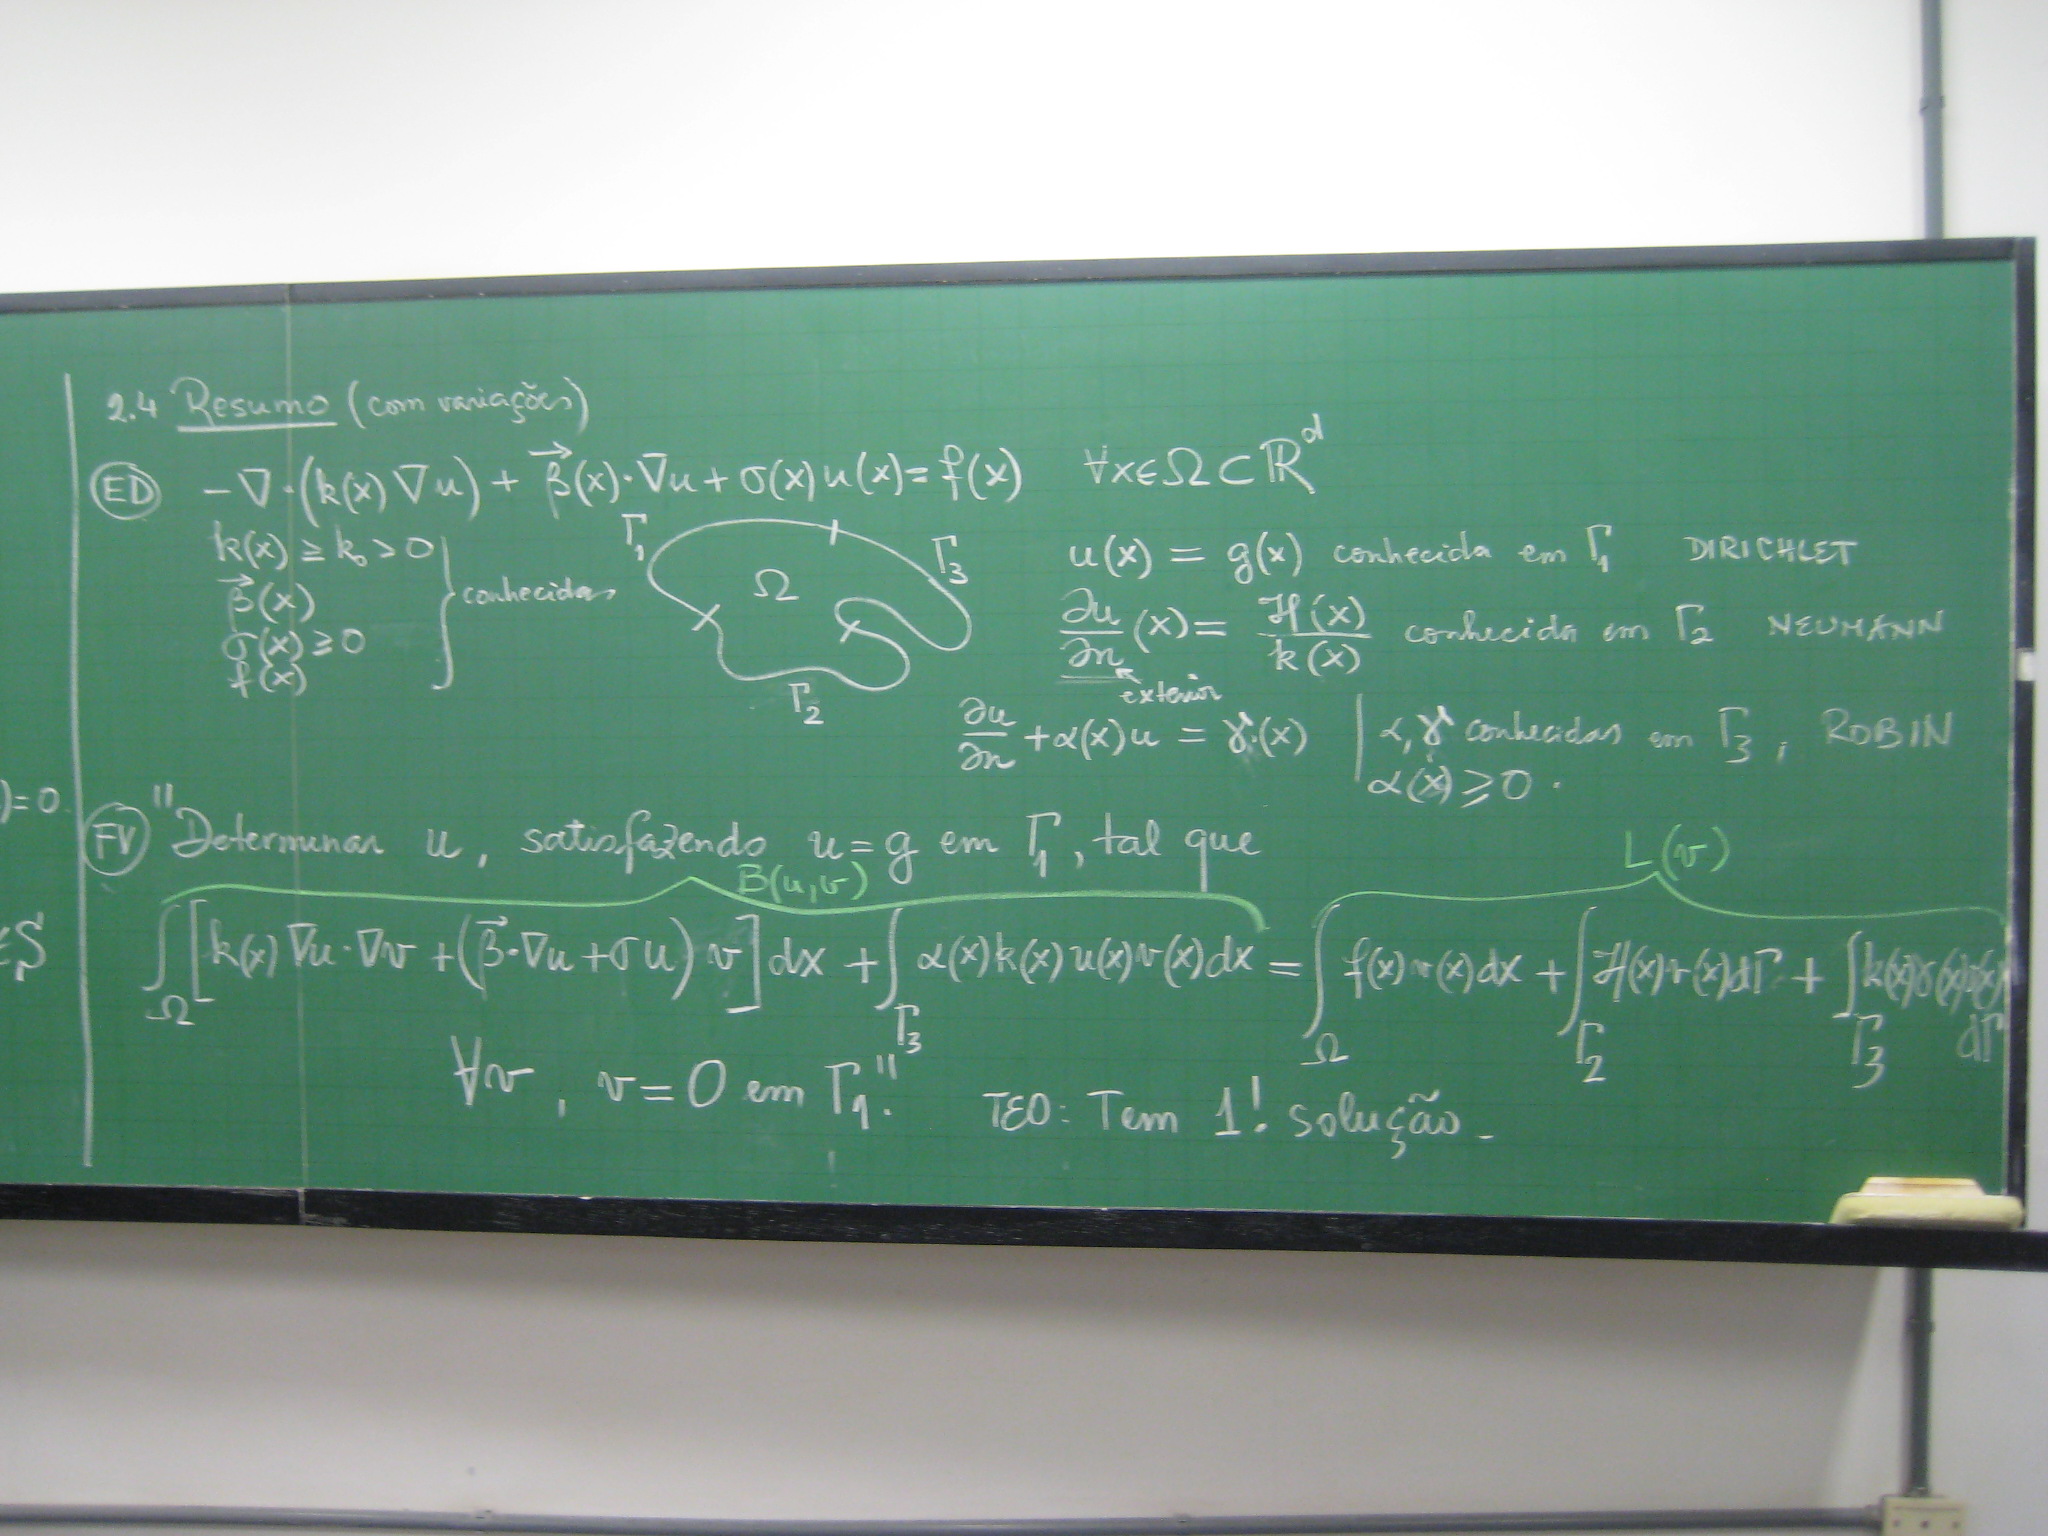 2.4 Resumo (com variações)
ED -∇·(k(x)∇u) + β⃗(x)·∇u + σ(x)u(x) = f(x) ∀x∈Ω⊂ℝᵈ
k(x) ≥ k₀ > 0
β⃗(x)
σ(x) ≥ 0
f(x)
conhecidas
Γ₁
Γ₃
Ω
Γ₂
u(x) = g(x) conhecida em Γ₁ DIRICHLET
∂u/∂n (x) = ℋ(x)/k(x) conhecida em Γ₂ NEUMANN
exterior
∂u/∂n + α(x)u = γ(x) | α, γ conhecidas em Γ₃, ROBIN
α(x) ≥ 0.
)=0
FV "Determinar u, satisfazendo u = g em Γ₁, tal que
B(u,v) L(v)
∈S
∫_Ω [k(x)∇u·∇v + (β⃗·∇u + σu) v] dx + ∫_Γ₃ α(x)k(x)u(x)v(x)dx = ∫_Ω f(x)v(x)dx + ∫_Γ₂ ℋ(x)v(x)dΓ + ∫_Γ₃ k(x)γ(x)v(x) dΓ
∀v, v = 0 em Γ₁."
TEO: Tem 1! solução.